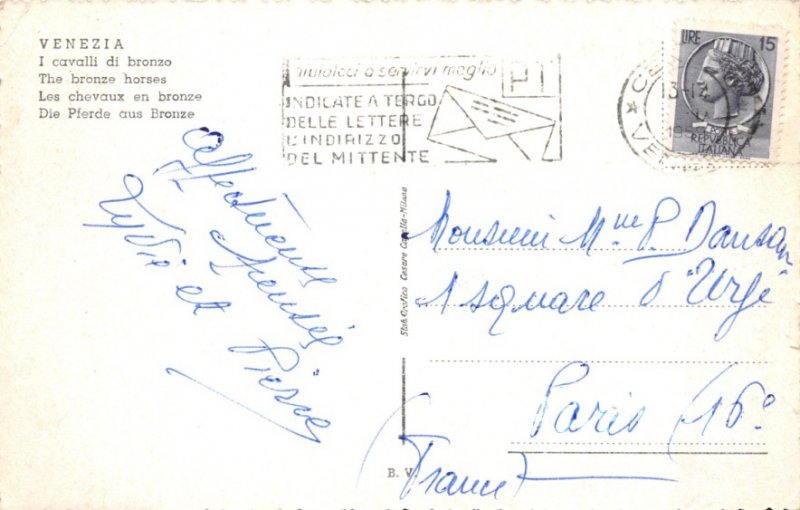 VENEZIA
I cavalli di bronzo
The bronze horses
Les chevaux en bronze
Die Pferde aus Bronze
Aiutateci a servirvi meglio
INDICATE A TERGO
DELLE LETTERE
L'INDIRIZZO
DEL MITTENTE
LIRE 15
REPUBBLICA
ITALIANA
Affectueuses
Pensées
Lydie et Pierre
Stab. Grafico Cesare Capello-Milano
Monsieur Mme P. Dansan
1 square d'"Urfé"
Paris (16°
France
B. V.